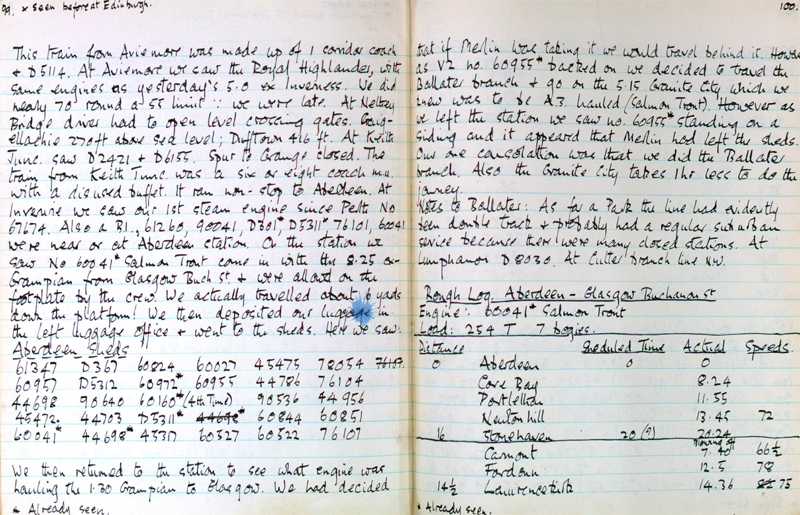 99. x seen before at Edinburgh.
This train from Aviemore was made up of 1 corridor coach
& D5114. At Aviemore we saw the Royal Highlander, with
same engines as yesterday's 5.0 ex Inverness. We did
nearly 70 round a 55 limit :: we were late. At Nelthy
Bridge driver had to open level crossing gates. Craig-
ellachie 270ft above sea level; Dufftown 416 ft. At Keith
Junc. saw D2421 & D6155. Spur to Grange closed. The
train from Keith Junc. was a six or eight coach m.u.
with a disused buffet. It ran non-stop to Aberdeen. At
Inverurie we saw our 1st steam engine since Perth No
67674. Also a B1, 61260, 90041, D301* D5311* 76101, 60041
were near or at Aberdeen station. On the station we
saw No 60041* Salmon Trout come in with the 8.25 ex-
Grampian from Glasgow Buch St & were allowed on the
footplate by the crew. We actually travelled about 6 yads
down the platform! We then deposited our luggage in
the left luggage office & went to the sheds. Here we saw:
Aberdeen Sheds
61347 D367 60824 60027 45475 78054 76107
60957 D5312 60972* 60955 44786 76104
44698 90640 60160* (4th Time) 90536 44956
45472 44703 D5311* 44698* 60844 60851
60041* 44698* 45317 60527 60522 76107
We then returned to the station to see what engine was
hauling the 1.30 Grampian to Glasgow. We had decided
* Already seen.
100.
that if Merlin was taking it we would travel behind it. However
as V2 no. 60955* backed on we decided to travel the
Ballater branch & go on the 5.15 Granite City which we
knew was to be A3 hauled (Salmon Trout). However as
we left the station we saw no. 60955* standing on a
siding and it appeared that Merlin had left the sheds.
Our one consolation was that we did the Ballater
branch. Also the Granite City takes 1hr less to do the
journey.
Notes to Ballater: As far a Park the line had evidently
been double track & probably had a regular suburban
service because there were many closed stations. At
Lumphanan D8030. At Culter branch line NW.
Rough Log. Aberdeen - Glasgow Buchanan St
Engine: 60041* Salmon Trout
Load: 254 T 7 bogies.
Distance Sheduled Time Actual Speeds
0 Aberdeen 0 0
Cove Bay 8.24
Portlethen 11.55
Newtonhill 13.45 72
16 Stonehaven 20 (?) 20.24
Carmont 7.40 66½
Fordoun 12.5 78
14½ Laurencekirk 14.36 75
* Already seen.